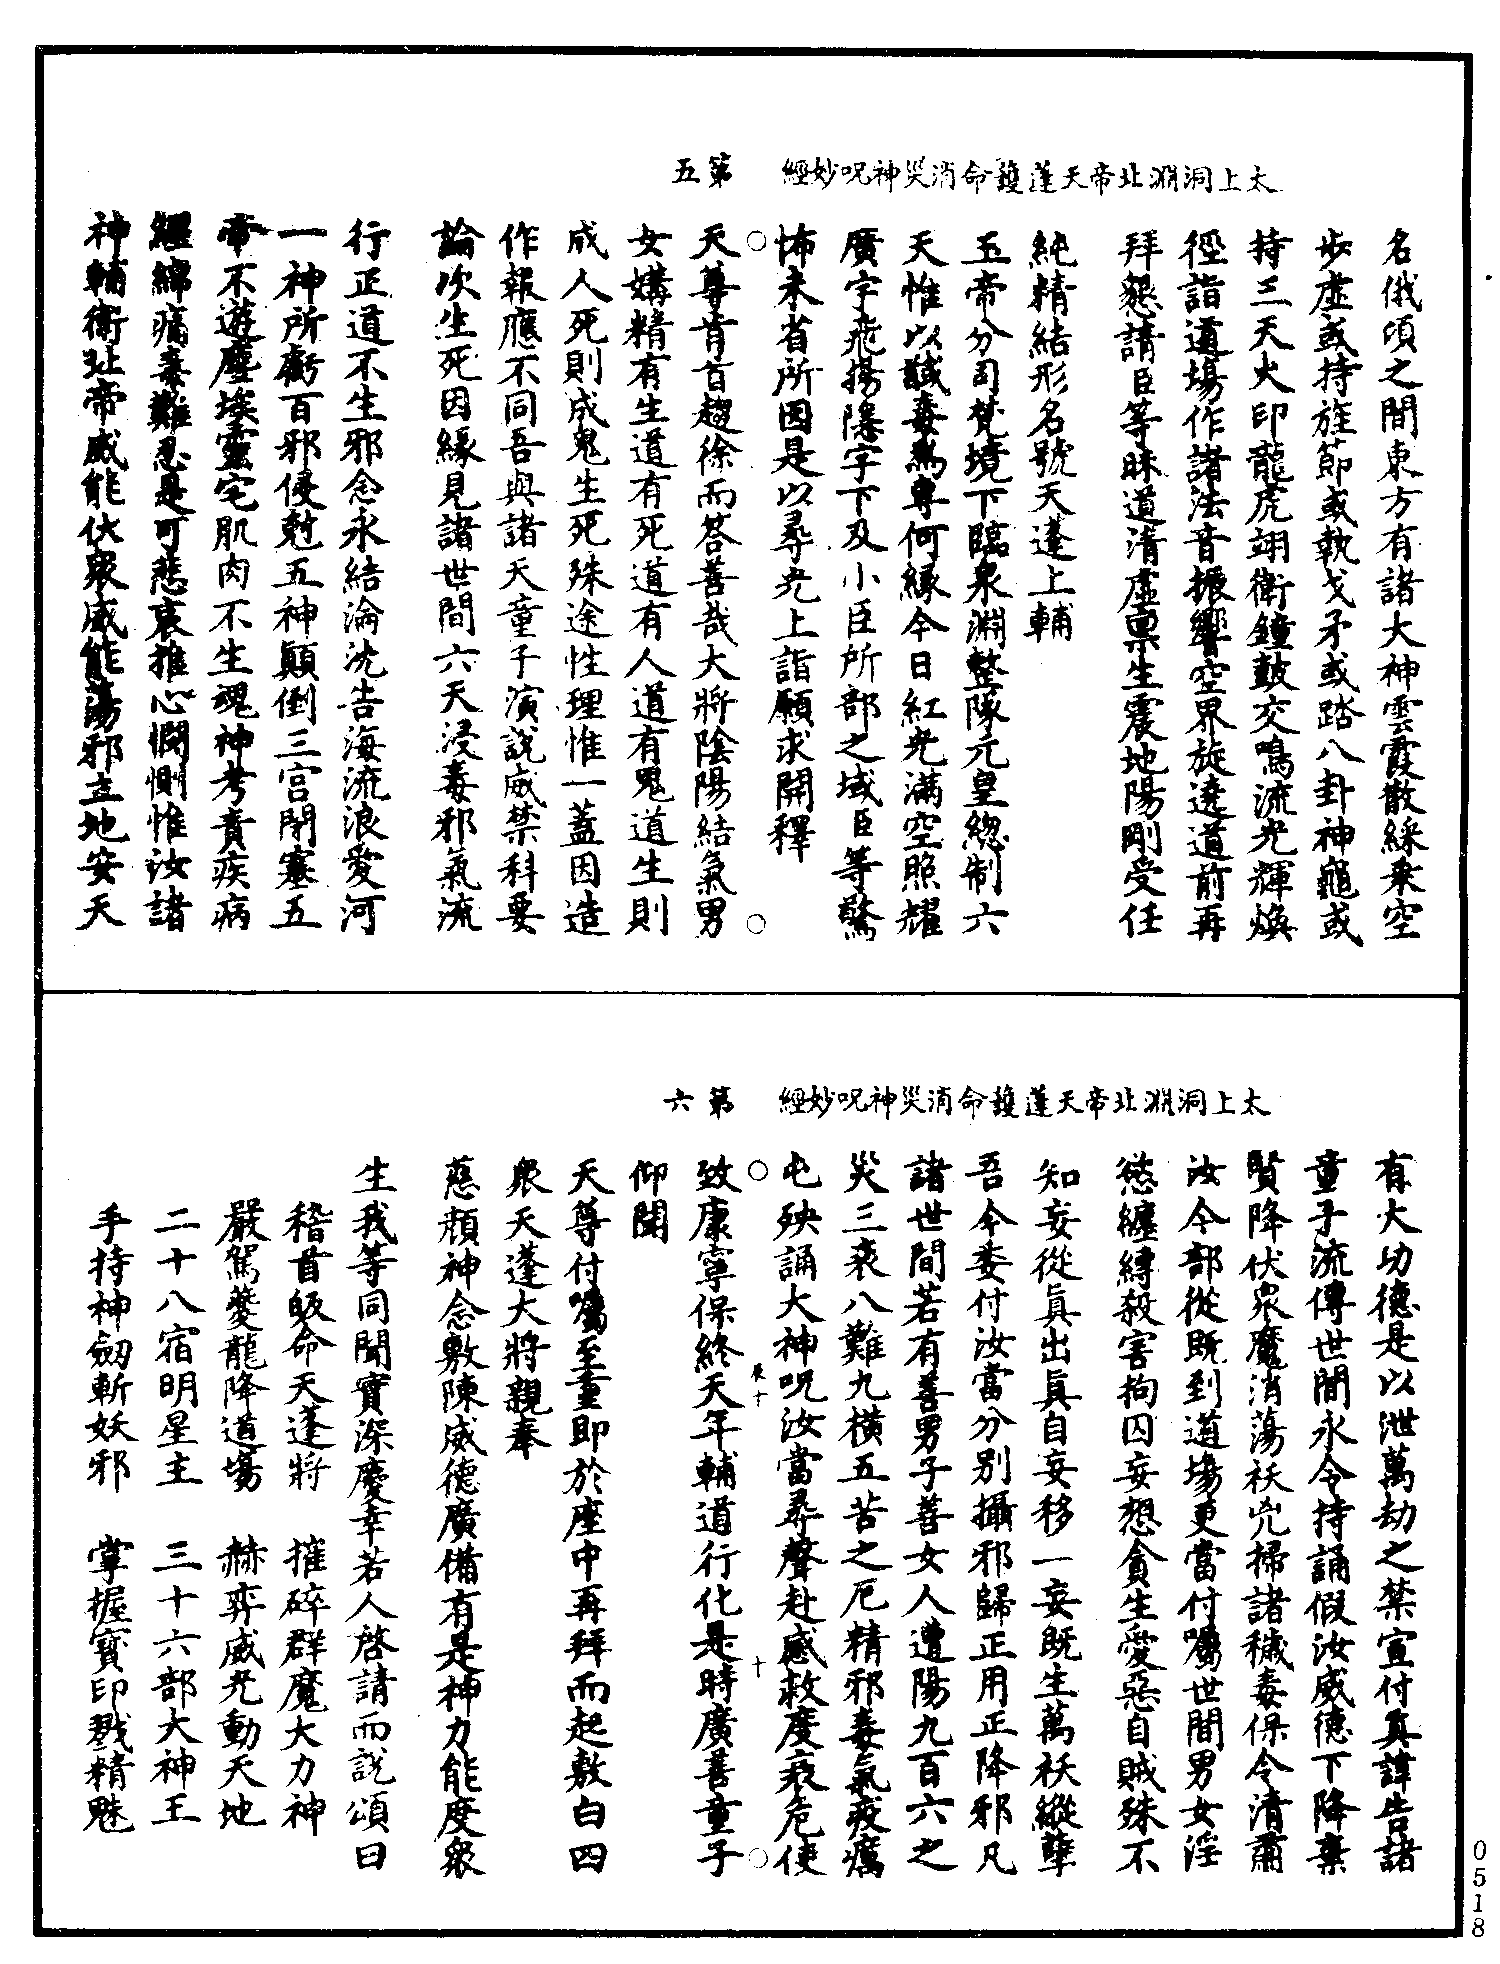 太上洞淵北帝天蓬護命消災神呪妙經　第五
名俄頃之間東方有諸大神雲霞散綵乘空
步虛或持旌節或執戈矛或踏八卦神龜或
持三天火印龍虎翊衛鐘鼓交鳴流光輝煥
徑詣道場作諸法音振響空界旋遶道前再
拜懇請臣等昧道清虛稟生震地陽剛受任
純精結形名號天蓬上輔
五帝分司梵境下臨泉淵整隊元皇總制六
天惟以馘毒為專何緣今日紅光滿空照耀
廣宇飛揚隱字下及小臣所部之域臣等驚
怖未省所因是以尋光上詣願求開釋
天尊肯首趨徐而答善哉大將陰陽結氣男
女媾精有生道有死道有人道有鬼道生則
成人死則成鬼生死殊途性理惟一蓋因造
作報應不同吾與諸天童子演說威禁科要
論次生死因緣見諸世間六天浸毒邪氣流
行正道不生邪念永結淪沈苦海流浪愛河
一神所虧百邪侵尅五神顛倒三宮閉塞五
帝不遊塵埃靈宅肌肉不生魂神考責疾病
纏綿痛毒難忍是可悲哀推心惻惻惟汝諸
神輔衛北帝威能伏眾威能蕩邪立地安天
太上洞淵北帝天蓬護命消災神呪妙經　第六
有大功德是以泄萬劫之禁宣付真諱告諸
童子流傳世間永令持誦假汝威德下降棄
賢降伏眾魔消蕩袄兇掃諸穢毒保令清肅
汝今部從既到道場更當付囑世間男女淫
慾纏縛殺害拘囚妄想貪生愛惡自賊殊不
知妄從真出真自妄移一妄既生萬袄縱孽
吾今委付汝當分別攝邪歸正用正降邪凡
諸世間若有善男子善女人遭陽九百六之
災三衰八難九橫五苦之厄精邪毒氣疫癘
屯殃誦大神呪汝當尋聲赴感救度衰危使
致康寧保終天年輔道行化是時廣善童子
仰聞
天尊付囑至重即於座中再拜而起敷白四
眾天蓬大將親奉
慈顏神念敷陳威德廣備有是神力能度眾
生我等同聞實深慶幸若人啓請而說頌曰
稽首皈命天蓬將　摧碎群魔大力神
嚴駕夔龍降道場　赫弈威光動天地
二十八宿明星主　三十六部大神王
手持神劒斬妖邪　掌握寶印戮精魅
0518